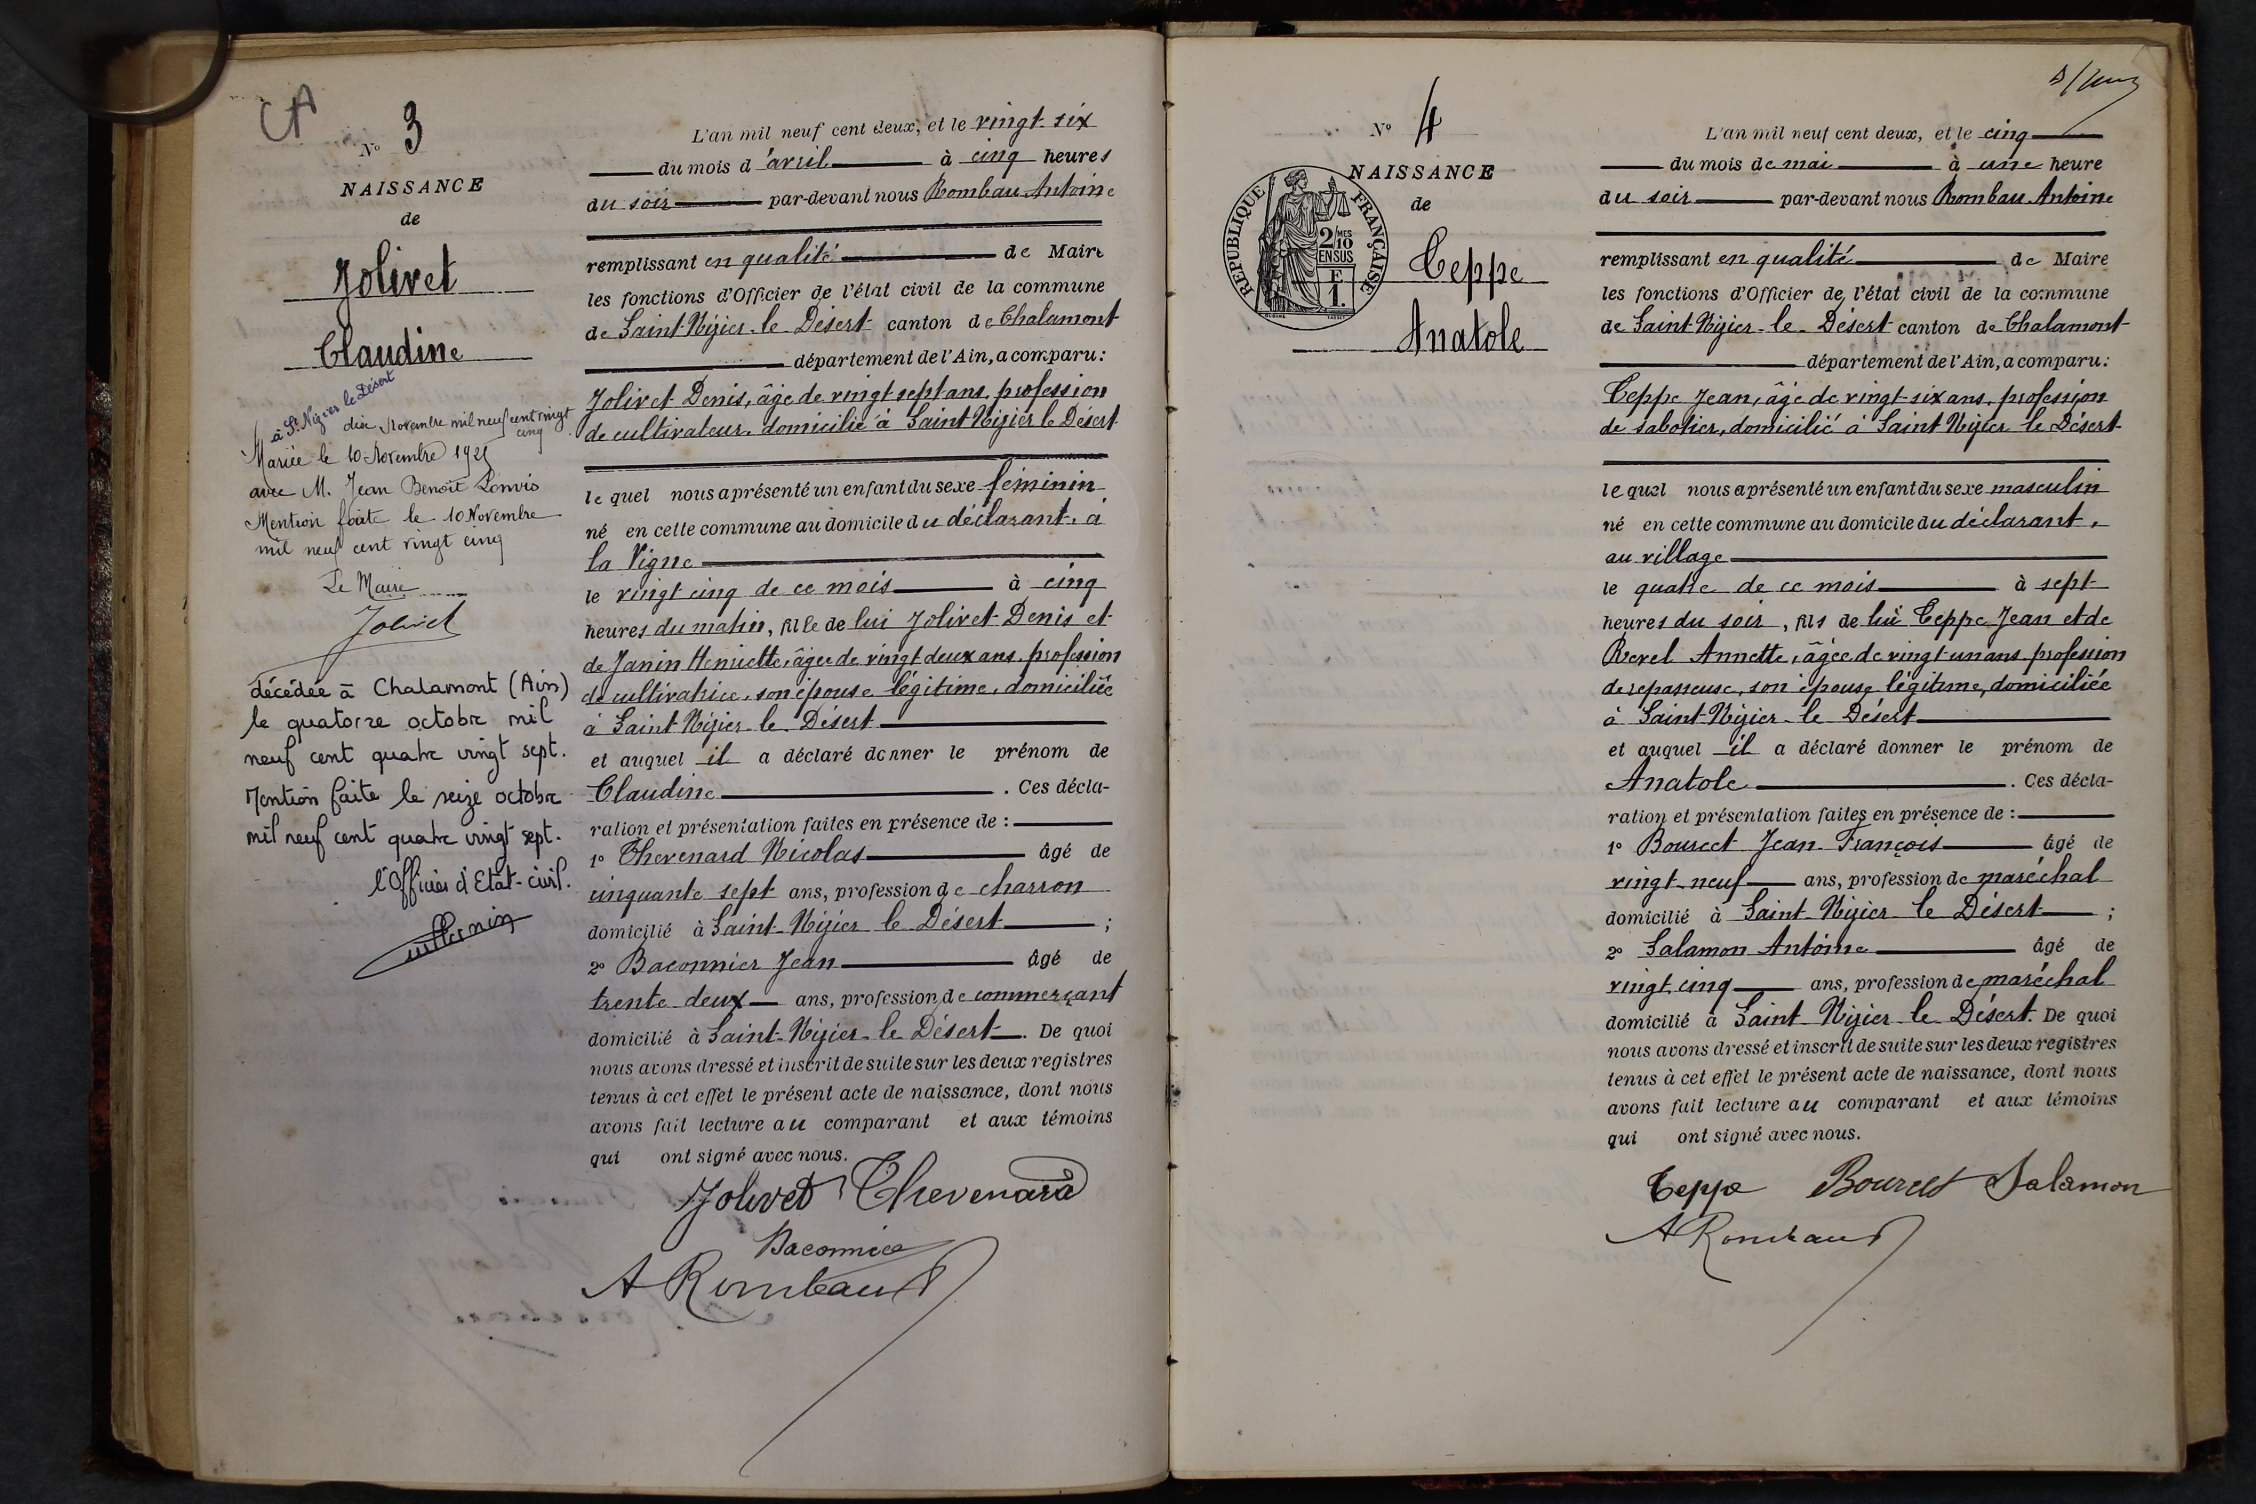 CA
N° 3
NAISSANCE
de
Jolivet
Claudine
à St Nizier le Désert
dix Novembre mil neuf cent vingt
cinq
Mariée le 10 Novembre 1925
avec M. Jean Benoît
Mention faite le 10 Novembre
mil neuf cent vingt cinq
Le Maire
Jolivet
décédée à Chalamont (Ain)
le quatorze octobre mil
neuf cent quatre vingt sept.
Mention faite le seize octobre
mil neuf cent quatre vingt sept.
l'Officier d'Etat-civil.
L'an mil neuf cent deux, et le vingt-six
du mois d'avril à cinq heures
du soir par-devant nous Rombau Antoine
remplissant en qualité de Maire
les fonctions d'Officier de l'état civil de la commune
de Saint-Nizier-le-Désert canton de Chalamont
département de l'Ain, a comparu:
Jolivet Denis, âgé de vingt sept ans, profession
de cultivateur, domicilié à Saint Nizier le Désert
lequel nous a présenté un enfant du sexe féminin
né en cette commune au domicile du déclarant, à
la Vigne
le vingt cinq de ce mois à cinq
heures du matin, fille de lui Jolivet Denis et
de Janin Henriette, âgée de vingt deux ans, profession
de cultivatrice, son épouse légitime, domiciliée
à Saint-Nizier-le-Désert
et auquel il a déclaré donner le prénom de
Claudine. Ces décla-
ration et présentation faites en présence de:
1° Thevenard Nicolas âgé de
cinquante sept ans, profession de charron
domicilié à Saint-Nizier le Désert;
2° Baconnier Jean âgé de
trente deux ans, profession de commerçant
domicilié à Saint-Nizier-le Désert. De quoi
nous avons dressé et inscrit de suite sur les deux registres
tenus à cet effet le présent acte de naissance, dont nous
avons fait lecture au comparant et aux témoins
qui ont signé avec nous.
Jolivet Thevenard
Baconnier
A Rombaud
N° 4
NAISSANCE
de
RÉPUBLIQUE FRANÇAISE
2/10 MES
EN SUS
F
1.
Teppe
Anatole
L'an mil neuf cent deux, et le cinq
du mois de mai à une heure
du soir par-devant nous Rombau Antoine
remplissant en qualité de Maire
les fonctions d'Officier de l'état civil de la commune
de Saint-Nizier-le-Désert canton de Chalamont
département de l'Ain, a comparu:
Teppe Jean, âgé de vingt-six ans, profession
de sabotier, domicilié à Saint Nizier le Désert
lequel nous a présenté un enfant du sexe masculin
né en cette commune au domicile du déclarant,
au village
le quatre de ce mois à sept
heures du soir, fils de lui Teppe Jean et de
Revel Annette, âgée de vingt-un ans, profession
de repasseuse, son épouse légitime, domiciliée
à Saint-Nizier-le Désert
et auquel il a déclaré donner le prénom de
Anatole. Ces décla-
ration et présentation faites en présence de:
1° Bourcet Jean-François âgé de
vingt-neuf ans, profession de maréchal
domicilié à Saint-Nizier-le Désert;
2° Salamon Antoine âgé de
vingt cinq ans, profession de maréchal
domicilié à Saint-Nizier-le-Désert. De quoi
nous avons dressé et inscrit de suite sur les deux registres
tenus à cet effet le présent acte de naissance, dont nous
avons fait lecture au comparant et aux témoins
qui ont signé avec nous.
Teppe Bourcet Salamon
A Rombaud